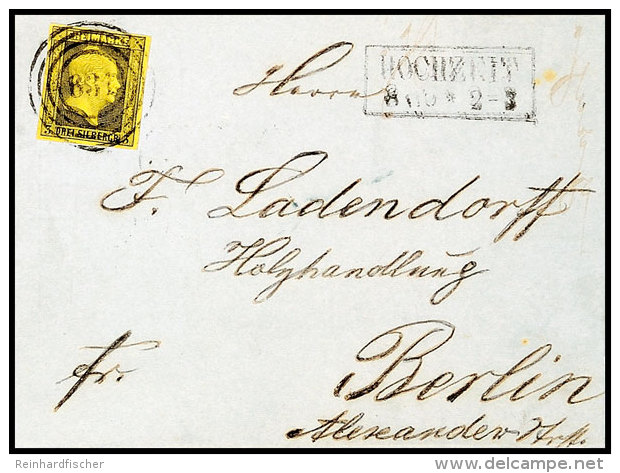 FREIMARKE
634
3 DREI SILBERGR. 3
HOCHZEIT
8 2-3
Herrn
F. Ladendorff
Holzhandlung
fr.
Berlin
Alexanderstr.
Reinhardfischer
delcampe.net